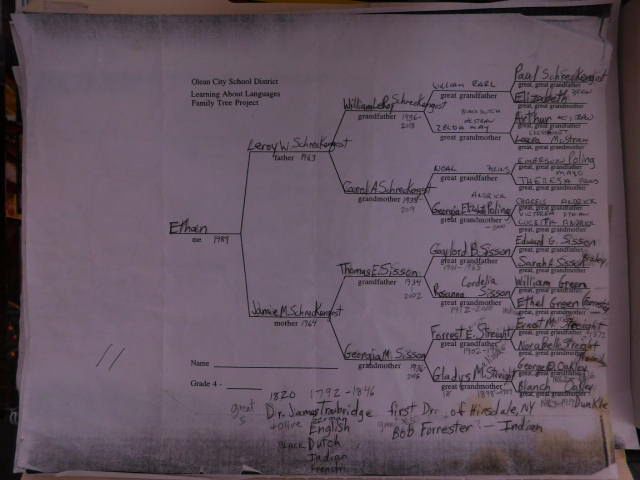 Olean City School District
Learning About Languages
Family Tree Project
Ethan
me 1989
Leroy W. Schreckengost
father 1963
Jamie M. Schreckengost
mother 1964
William LeRoy Schreckengost
grandfather 1936-
2013
Carol A. Schreckengost
grandmother 1938-
2019
Thomas E. Sisson
grandfather 1934
2002
Georgia M. Sisson
grandmother 1936
WILLIAM EARL
great grandfather
MCSTRAW
ZELDA MAY
great grandmother
NOAL
great grandfather
ANDRICK
Georgia Poling
great grandmother
Gaylord B. Sisson
great grandfather
Cordelia
Rosanna Sisson
great grandmother
1912-2000
Forrest E. Streight
great grandfather
1902-
Gladys M. Streight
great grandmother
Paul Schreckengost
great, great grandfather
Elizabeth
great, great grandmother
Arthur MCSTRAW
great, great grandfather
Laura McStraw
great, great grandmother
EMERSON Poling
great, great grandfather
MAYO
THERESA
great, great grandmother
CHARLES ANDRICK
great, great grandfather
VICTORIA
LUCRETIA ANDRICK
great, great grandmother
Edward G. Sisson
great, great grandfather
Sarah Sisson
great, great grandmother
William Green
great, great grandfather
Ethel Green
great, great grandmother
Ernest M. Streight
great, great grandfather
Norabelle Streight
great, great grandmother
George D. Oakley
great, great grandfather
Blanch Oakley
great, great grandmother
Dunkle
Name
Grade 4 -
1820 1792-1846
great
Dr. James Trowbridge first Dr. of Hinsdale, NY
+Olive German
English
Bob Forrester - Indian
Dutch
Indian
French